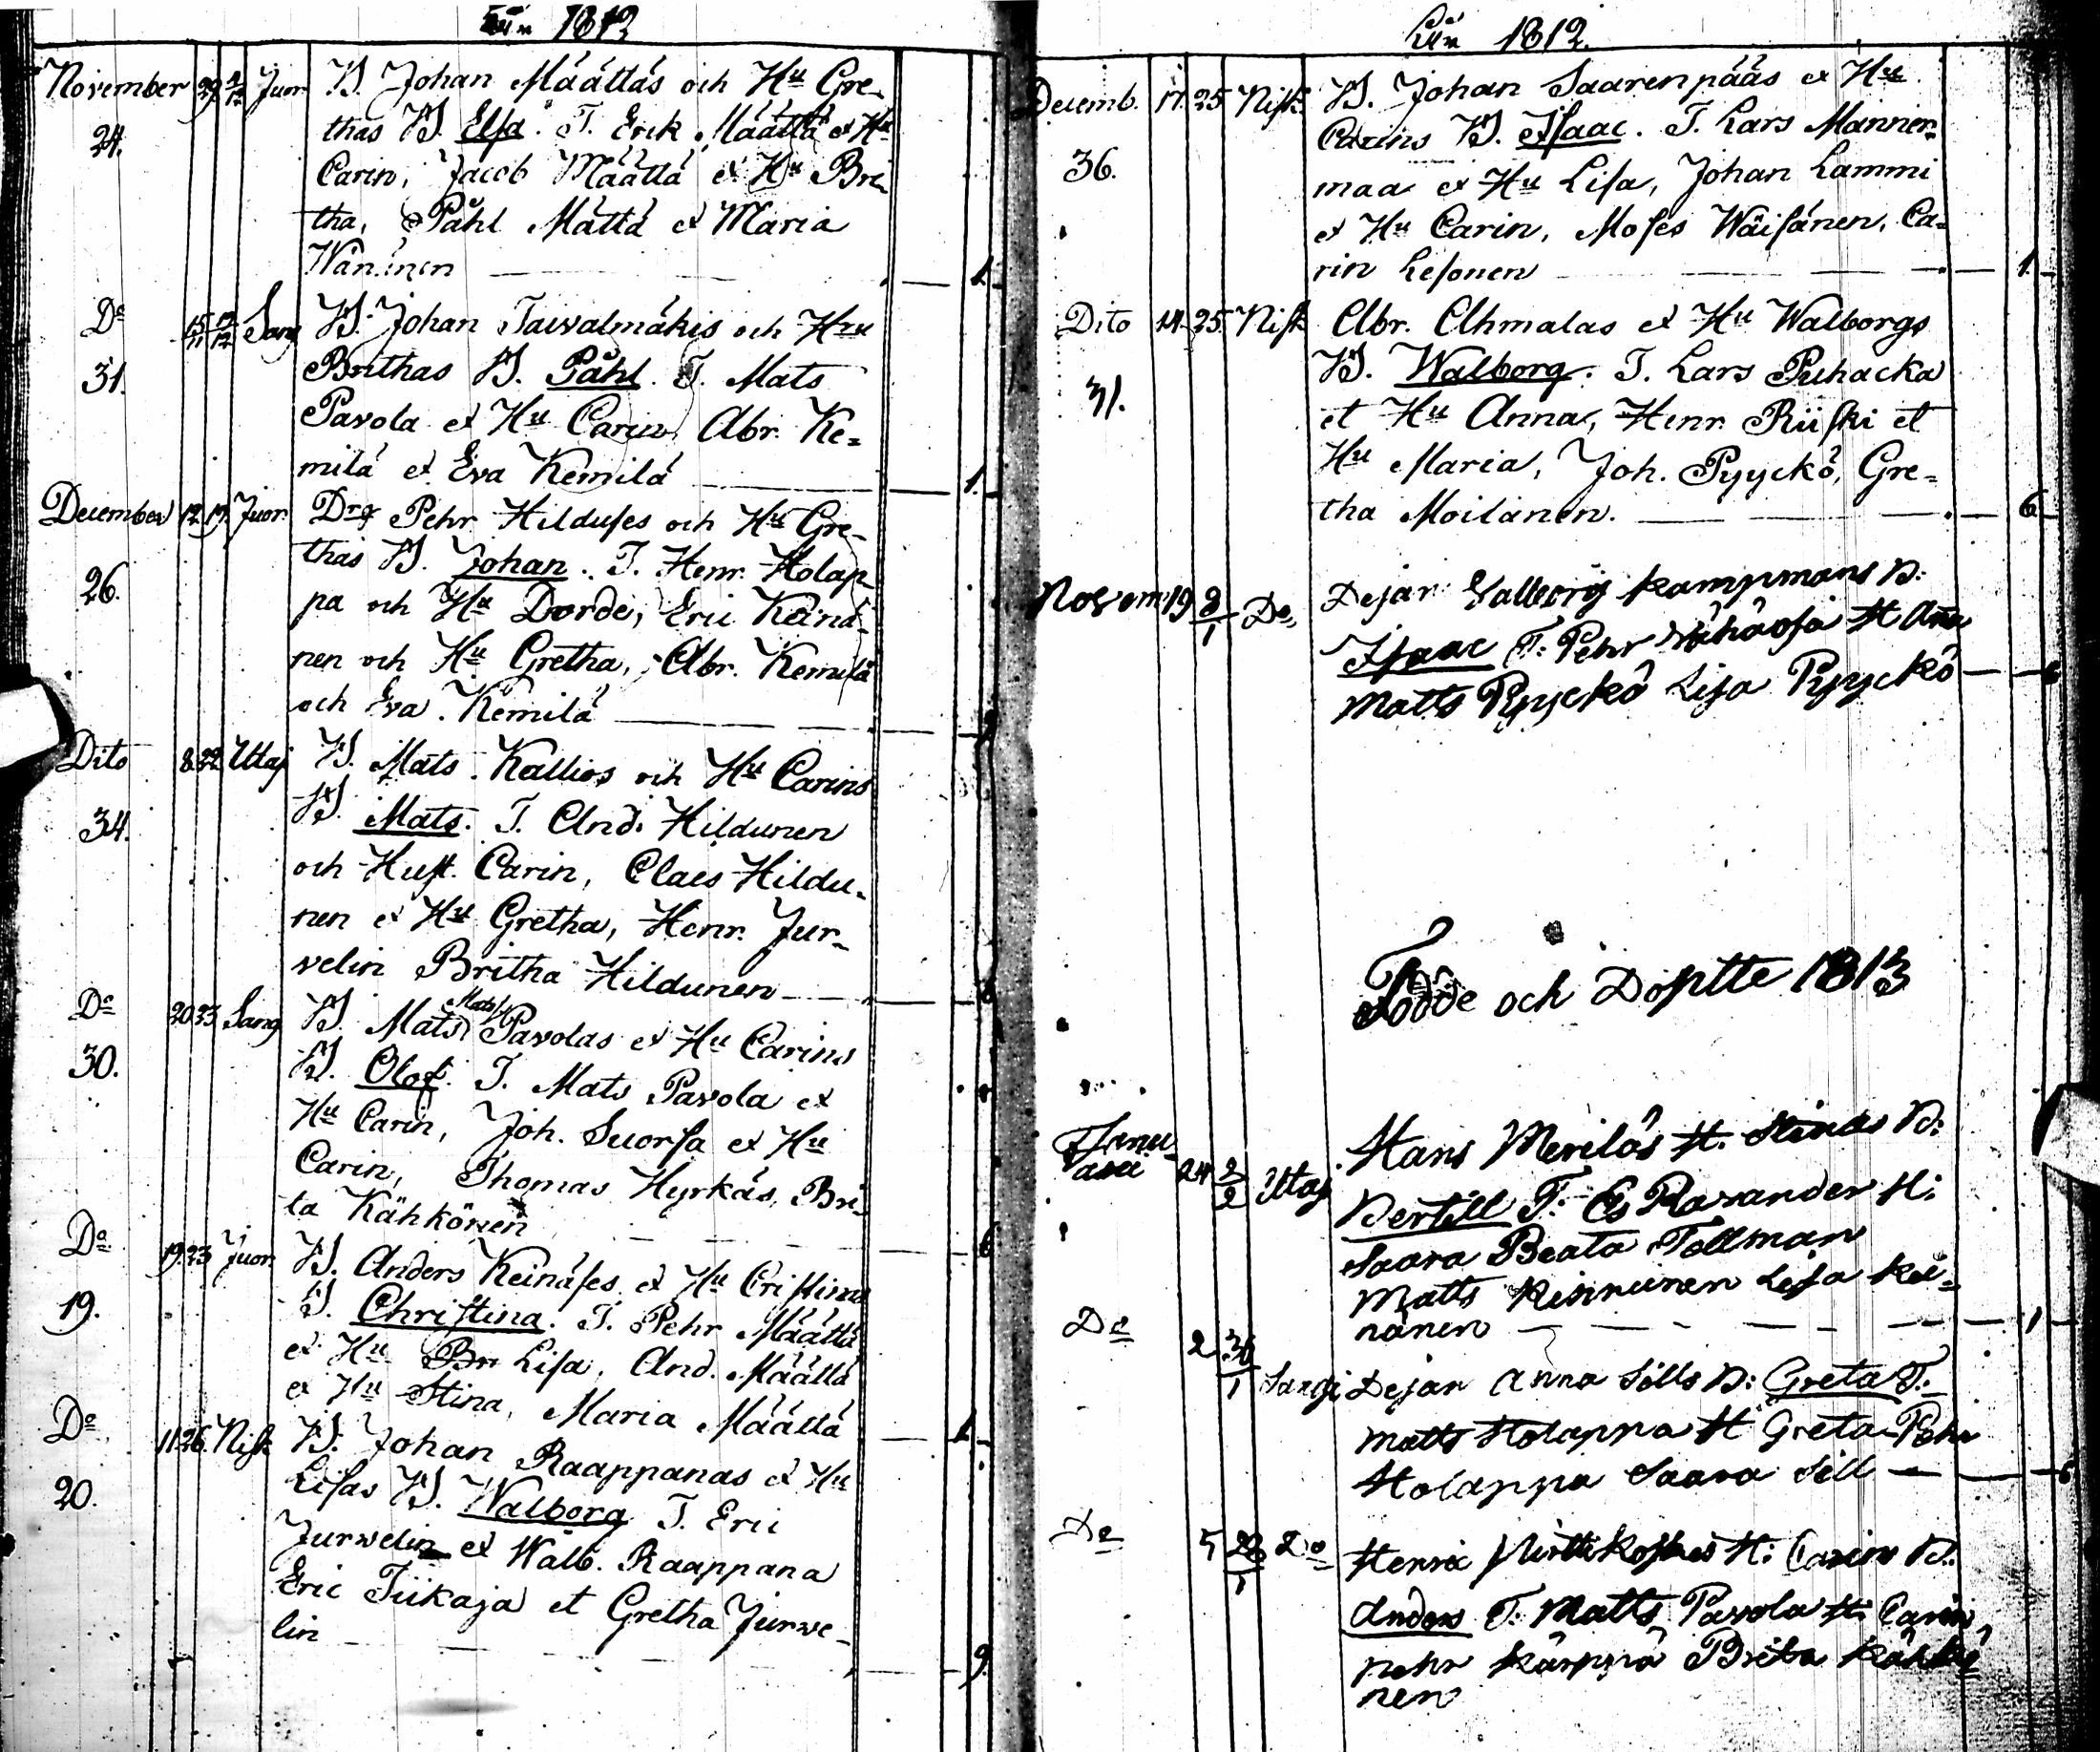 Åhr 1812
November 29 2/12 Juor B. Johan Määttäs och Hu Gre-
24. thas B. Elsa. T. Erik Määttä et Hu
Carin, Jacob Määttä et Hu Bri-
tha, Påhl Mättä et Maria
Wäninen 1.
Do 15/11 13/12 Sang B. Johan Taivalmäkis och Hru
31. Brithas B. Påhl. T. Mats
Pavola et Hu Carin, Abr. Ke=
milä et Eva Kemilä 1.
December 12. 19. Juor. Drg Pehr Hilduses och Hu Gre-
thas B. Johan. T. Henr. Holap-
26. pa och Hu Dorde, Eric Keinä-
nen och Hu Gretha, Abr. Kemilä
och Eva Kemilä
Dito 8. 22. Utaj B. Mats Kallios och Hu Carins
34. B. Mats. T. And. Hildunen
och Hust. Carin, Claes Hildu-
nen et Hu Gretha, Henr. Jur-
velin Britha Hildunen
Do 20 23 Sang B. Mats Matss. Pavolas et Hu Carins
30. B. Olof. T. Mats Pavola et
Hu Carin, Joh. Suorsa et Hu
Carin, Thomas Hyrkäs, Bri-
ta Kähkönen 6
Do 19. 23 Juor. B. Anders Keinäses et Hu Cristinas
19. B. Christina. T. Pehr Määttä
et Hu Br Lisa, And. Määttä
et Hu Stina, Maria Määttä 1.
Do 11 26. Nisk B. Johan Raappanas et Hu
20. Lisas B. Walborg T. Eric
Jurvelin et Walb. Raappana
Eric Tiikaja et Gretha Jurve-
lin 9.
Åhr 1812.
Decemb. 17. 25 Nisk. B. Johan Saarenpääs et Hu
Carins B. Isaac. T. Lars Manner-
36. maa et Hu Lisa, Johan Lammi
et Hu Carin, Moses Wäisänen, Ca-
rin Lesonen 1.
Dito 14. 25. Nisk Abr. Ahmalas et Hu Walborgs
B. Walborg. T. Lars Puhacka
31. et Hu Anna, Henr. Riiski et
Hu Maria, Joh. Pyyckö, Gre=
tha Moilanen. 6
Novem 19 8/1 Do, Dejar Valborg Kampmans B:
Isaac T: Pehr H Anna
Matts Pyyckö Lisa Pyyckö 6
Födde och Döptte 1813
Janu-
arii 24 2/2 Utaj. Hans Meriläs H. Stinas B:
Bertill T: Es Ravander H:
Saara Beata Tollman
Matts Lisa Kei=
nänen 1
Do 2 30/1 Sangi Dejan Anna Sills B: Greta T:
Matts Holappa H Greta Pehr
Holappa Saara Sill 6
Do 5 Do Henric H: Carins B:
Anders T: Matts Pavola H: Carin
Pehr Kärppä Brita Kähkö
nen